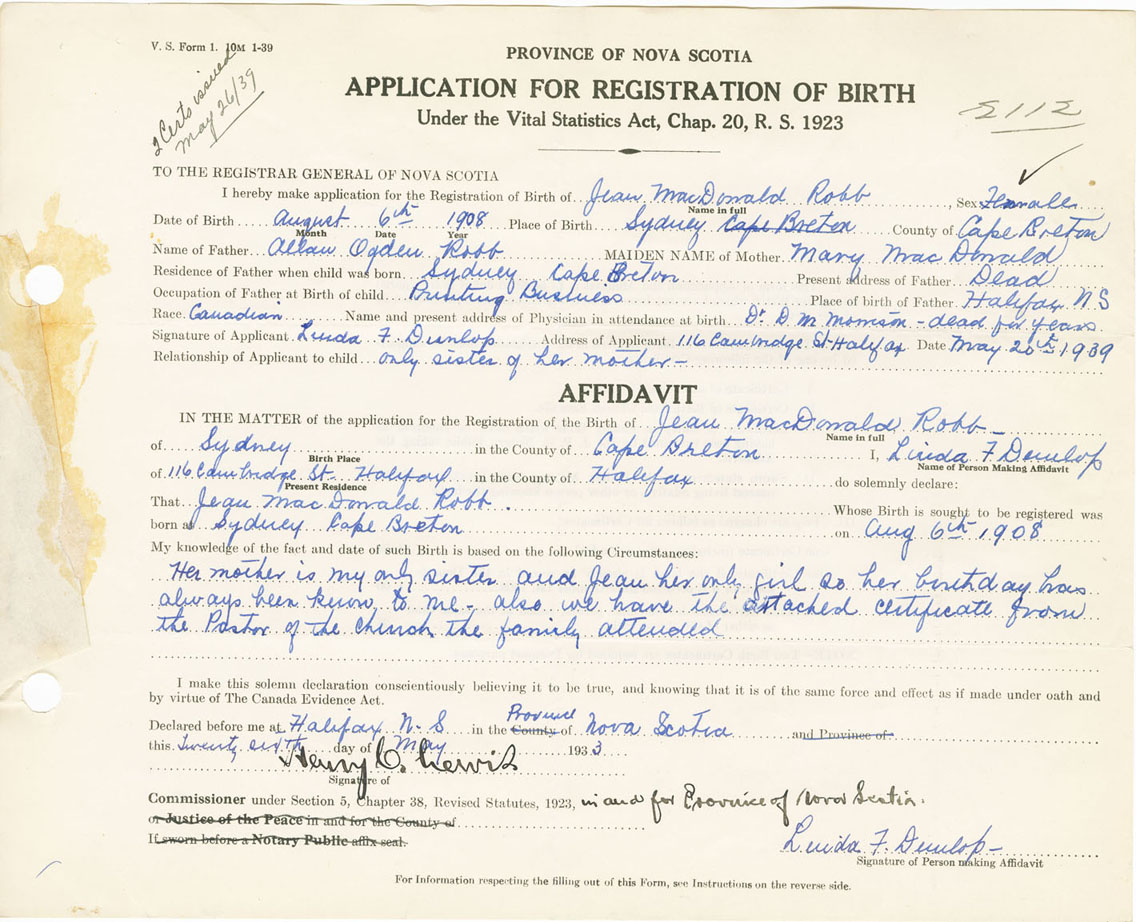 V. S. Form 1. 10M 1-39
2 Certs issued
May 26/39
PROVINCE OF NOVA SCOTIA
APPLICATION FOR REGISTRATION OF BIRTH
Under the Vital Statistics Act, Chap. 20, R. S. 1923
TO THE REGISTRAR GENERAL OF NOVA SCOTIA
I hereby make application for the Registration of Birth of Jean MacDonald Robb, Sex Female
Name in full
Date of Birth August 6th 1908 Place of Birth Sydney Cape Breton County of Cape Breton
Month Date Year
Name of Father Allan Ogden Robb MAIDEN NAME of Mother Mary MacDonald
Residence of Father when child was born Sydney Cape Breton Present address of Father Dead
Occupation of Father at Birth of child Printing Business Place of birth of Father Halifax N S
Race Canadian Name and present address of Physician in attendance at birth Dr. D M Morrison - dead for years
Signature of Applicant Linda F. Dunlop Address of Applicant 116 Cambridge St Halifax Date May 20th 1939
Relationship of Applicant to child only sister of her mother -
AFFIDAVIT
IN THE MATTER of the application for the Registration of the Birth of Jean MacDonald Robb -
Name in full
of Sydney in the County of Cape Breton I, Linda F Dunlop
Birth Place Name of Person Making Affidavit
of 116 Cambridge St- Halifax in the County of Halifax do solemnly declare:
Present Residence
That Jean MacDonald Robb. Whose Birth is sought to be registered was
born at Sydney Cape Breton on Aug 6th 1908
My knowledge of the fact and date of such Birth is based on the following Circumstances:
Her mother is my only sister and Jean her only girl so her birthday has
always been know to me - also we have the attached certificate from
the Pastor of the church the family attended
I make this solemn declaration conscientiously believing it to be true, and knowing that it is of the same force and effect as if made under oath and
by virtue of The Canada Evidence Act.
Declared before me at Halifax N. S in the County Province of Nova Scotia and Province of
this twenty sixth day of May 1933
Henry C.
Signature of
Commissioner under Section 5, Chapter 38, Revised Statutes, 1923, in and for Province of Nova Scotia.
or Justice of the Peace in and for the County of
If sworn before a Notary Public affix seal.
Linda F. Dunlop -
Signature of Person making Affidavit
For Information respecting the filling out of this Form, see Instructions on the reverse side.